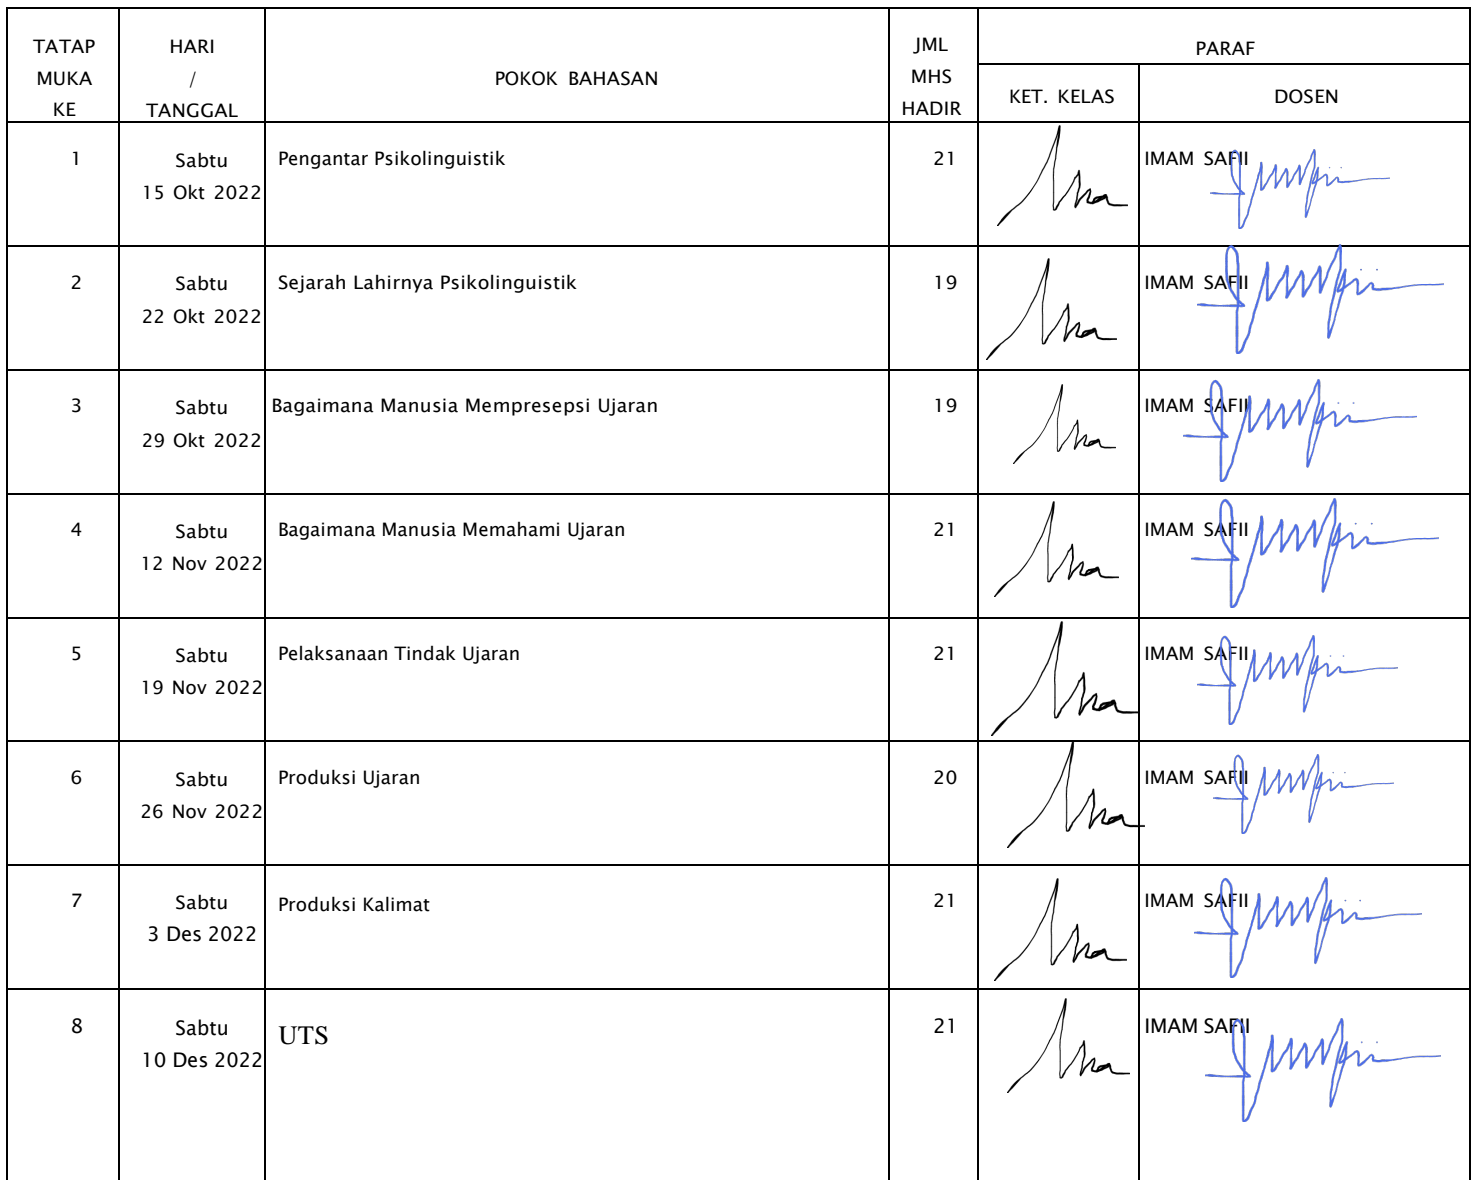 TATAP MUKA KE
HARI / TANGGAL
POKOK BAHASAN
JML MHS HADIR
PARAF
KET. KELAS
DOSEN
1
Sabtu
15 Okt 2022
Pengantar Psikolinguistik
21
IMAM SAFII
2
Sabtu
22 Okt 2022
Sejarah Lahirnya Psikolinguistik
19
IMAM SAFII
3
Sabtu
29 Okt 2022
Bagaimana Manusia Mempresepsi Ujaran
19
IMAM SAFII
4
Sabtu
12 Nov 2022
Bagaimana Manusia Memahami Ujaran
21
IMAM SAFII
5
Sabtu
19 Nov 2022
Pelaksanaan Tindak Ujaran
21
IMAM SAFII
6
Sabtu
26 Nov 2022
Produksi Ujaran
20
IMAM SAFII
7
Sabtu
3 Des 2022
Produksi Kalimat
21
IMAM SAFII
8
Sabtu
10 Des 2022
UTS
21
IMAM SAFII